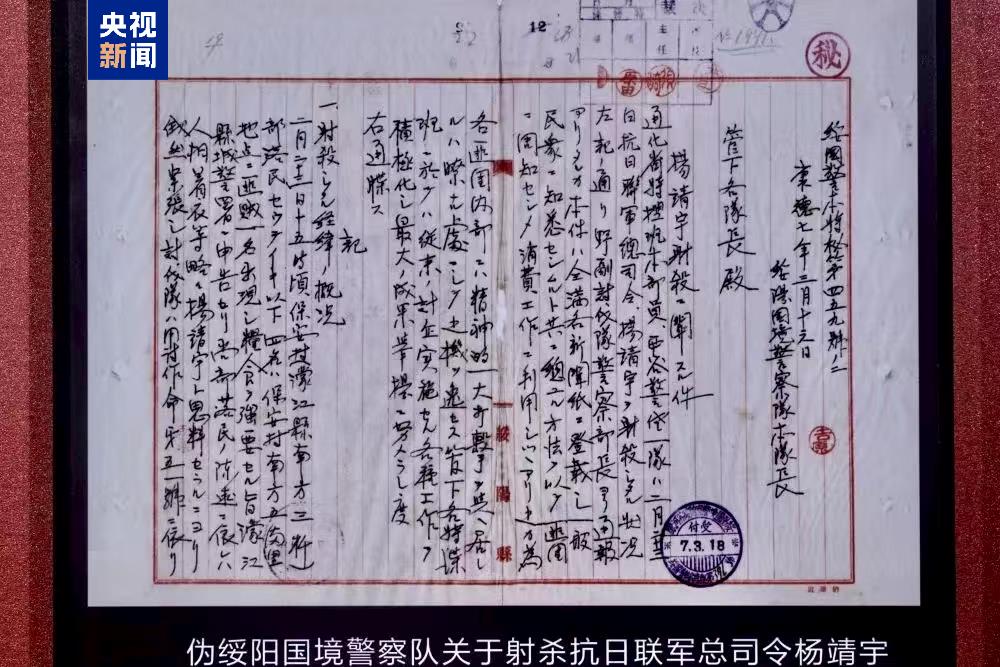 央视
新闻
秘
綏國警本特秘第四五九號ノ二
康德七年三月十三日
綏陽國境警察隊本隊長
管下各隊長殿
楊靖宇射殺ニ關スル件
通化省特捜班本部員西谷警佐一隊ハ二月二三
日抗日聯軍總司令楊靖宇ヲ射殺シタル狀況
左記ノ通リ野副討伐隊警察部長ヨリ通報
アリタルカ本件ハ全滿各新聞紙ニ登載シ一般
民衆ニ知悉セシムルト共ニ總ユル方法ヲ以テ匪團
ニ周知セシメ消費工作ニ利用シツツアリ カ為
各匪團內部ニハ精神的一大打擊ヲ與ヘ居レ
ルハ瞭 ナル處ニシテ此機ヲ逸セス管下各特捜
班ニ於テハ從來ノ討 實施セル各種工作ヲ
積極化シ最大ノ成果擧揚ニ努メラレ度
右通牒ス
記
一、射殺シタル經緯ノ概況
二月二三日十五時頃保安村濛江縣南方三粁
部落民 以下四名ハ保安村南方五
地点ニ匪賊一名出現シ糧食ヲ强要セル旨濛江
縣城警署ニ申告セリ尚部落民ノ陳述ニ依レハ
人相着衣等略々楊靖宇ト思料セラルニヨリ
俄然緊張シ討伐隊ハ 作命第五號ニ依リ
綏陽縣
付受
7.3.18
伪绥阳国境警察队关于射杀抗日联军总司令杨靖宇